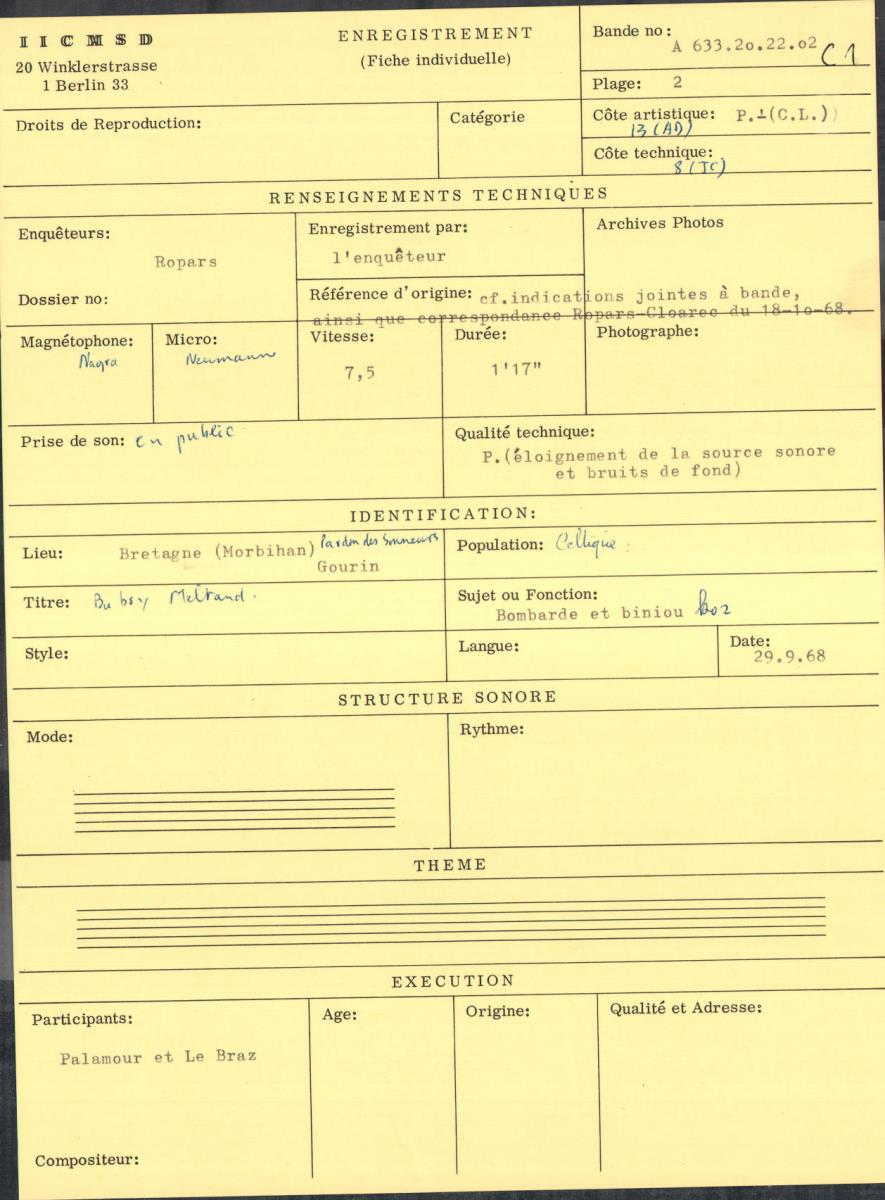 IICMSD
20 Winklerstrasse
1 Berlin 33
ENREGISTREMENT
(Fiche individuelle)
Bande no: A 633.2o.22.o2 C1
Plage: 2
Droits de Reproduction:
Catégorie
Côte artistique: P.⊥(C.L.))
13 (AD)
Côte technique:
8 (JC)
RENSEIGNEMENTS TECHNIQUES
Enquêteurs:
Ropars
Dossier no:
Enregistrement par:
l'enquêteur
Référence d'origine: cf.indications jointes à bande,
ainsi que correspondance Ropars-Cloarec du 18-1o-68.
Archives Photos
Magnétophone:
Nagra
Micro:
Neumann
Vitesse:
7,5
Durée:
1'17"
Photographe:
Prise de son: en public
Qualité technique:
P.(éloignement de la source sonore
et bruits de fond)
IDENTIFICATION:
Lieu: Bretagne (Morbihan) Pardon des Sonneurs
Gourin
Population: Celtique
Titre: Melrand.
Sujet ou Fonction:
Bombarde et biniou koz
Style:
Langue:
Date:
29.9.68
STRUCTURE SONORE
Mode:
Rythme:
THEME
EXECUTION
Participants:
Palamour et Le Braz
Age:
Origine:
Qualité et Adresse:
Compositeur: